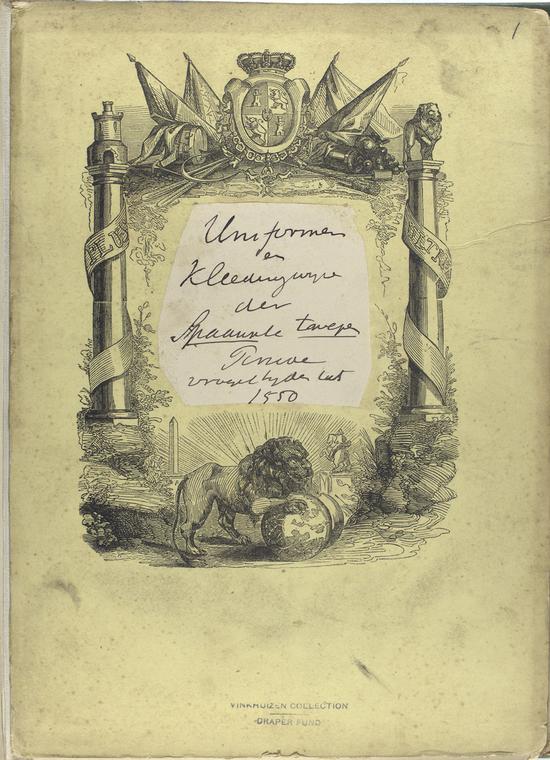 1
PLUS
ULTRA
Uniformen
en
Kleedingwijze
der
Spaansche troepen
vroegst tyden tot
1550
VINKHUIZEN COLLECTION
DRAPER FUND